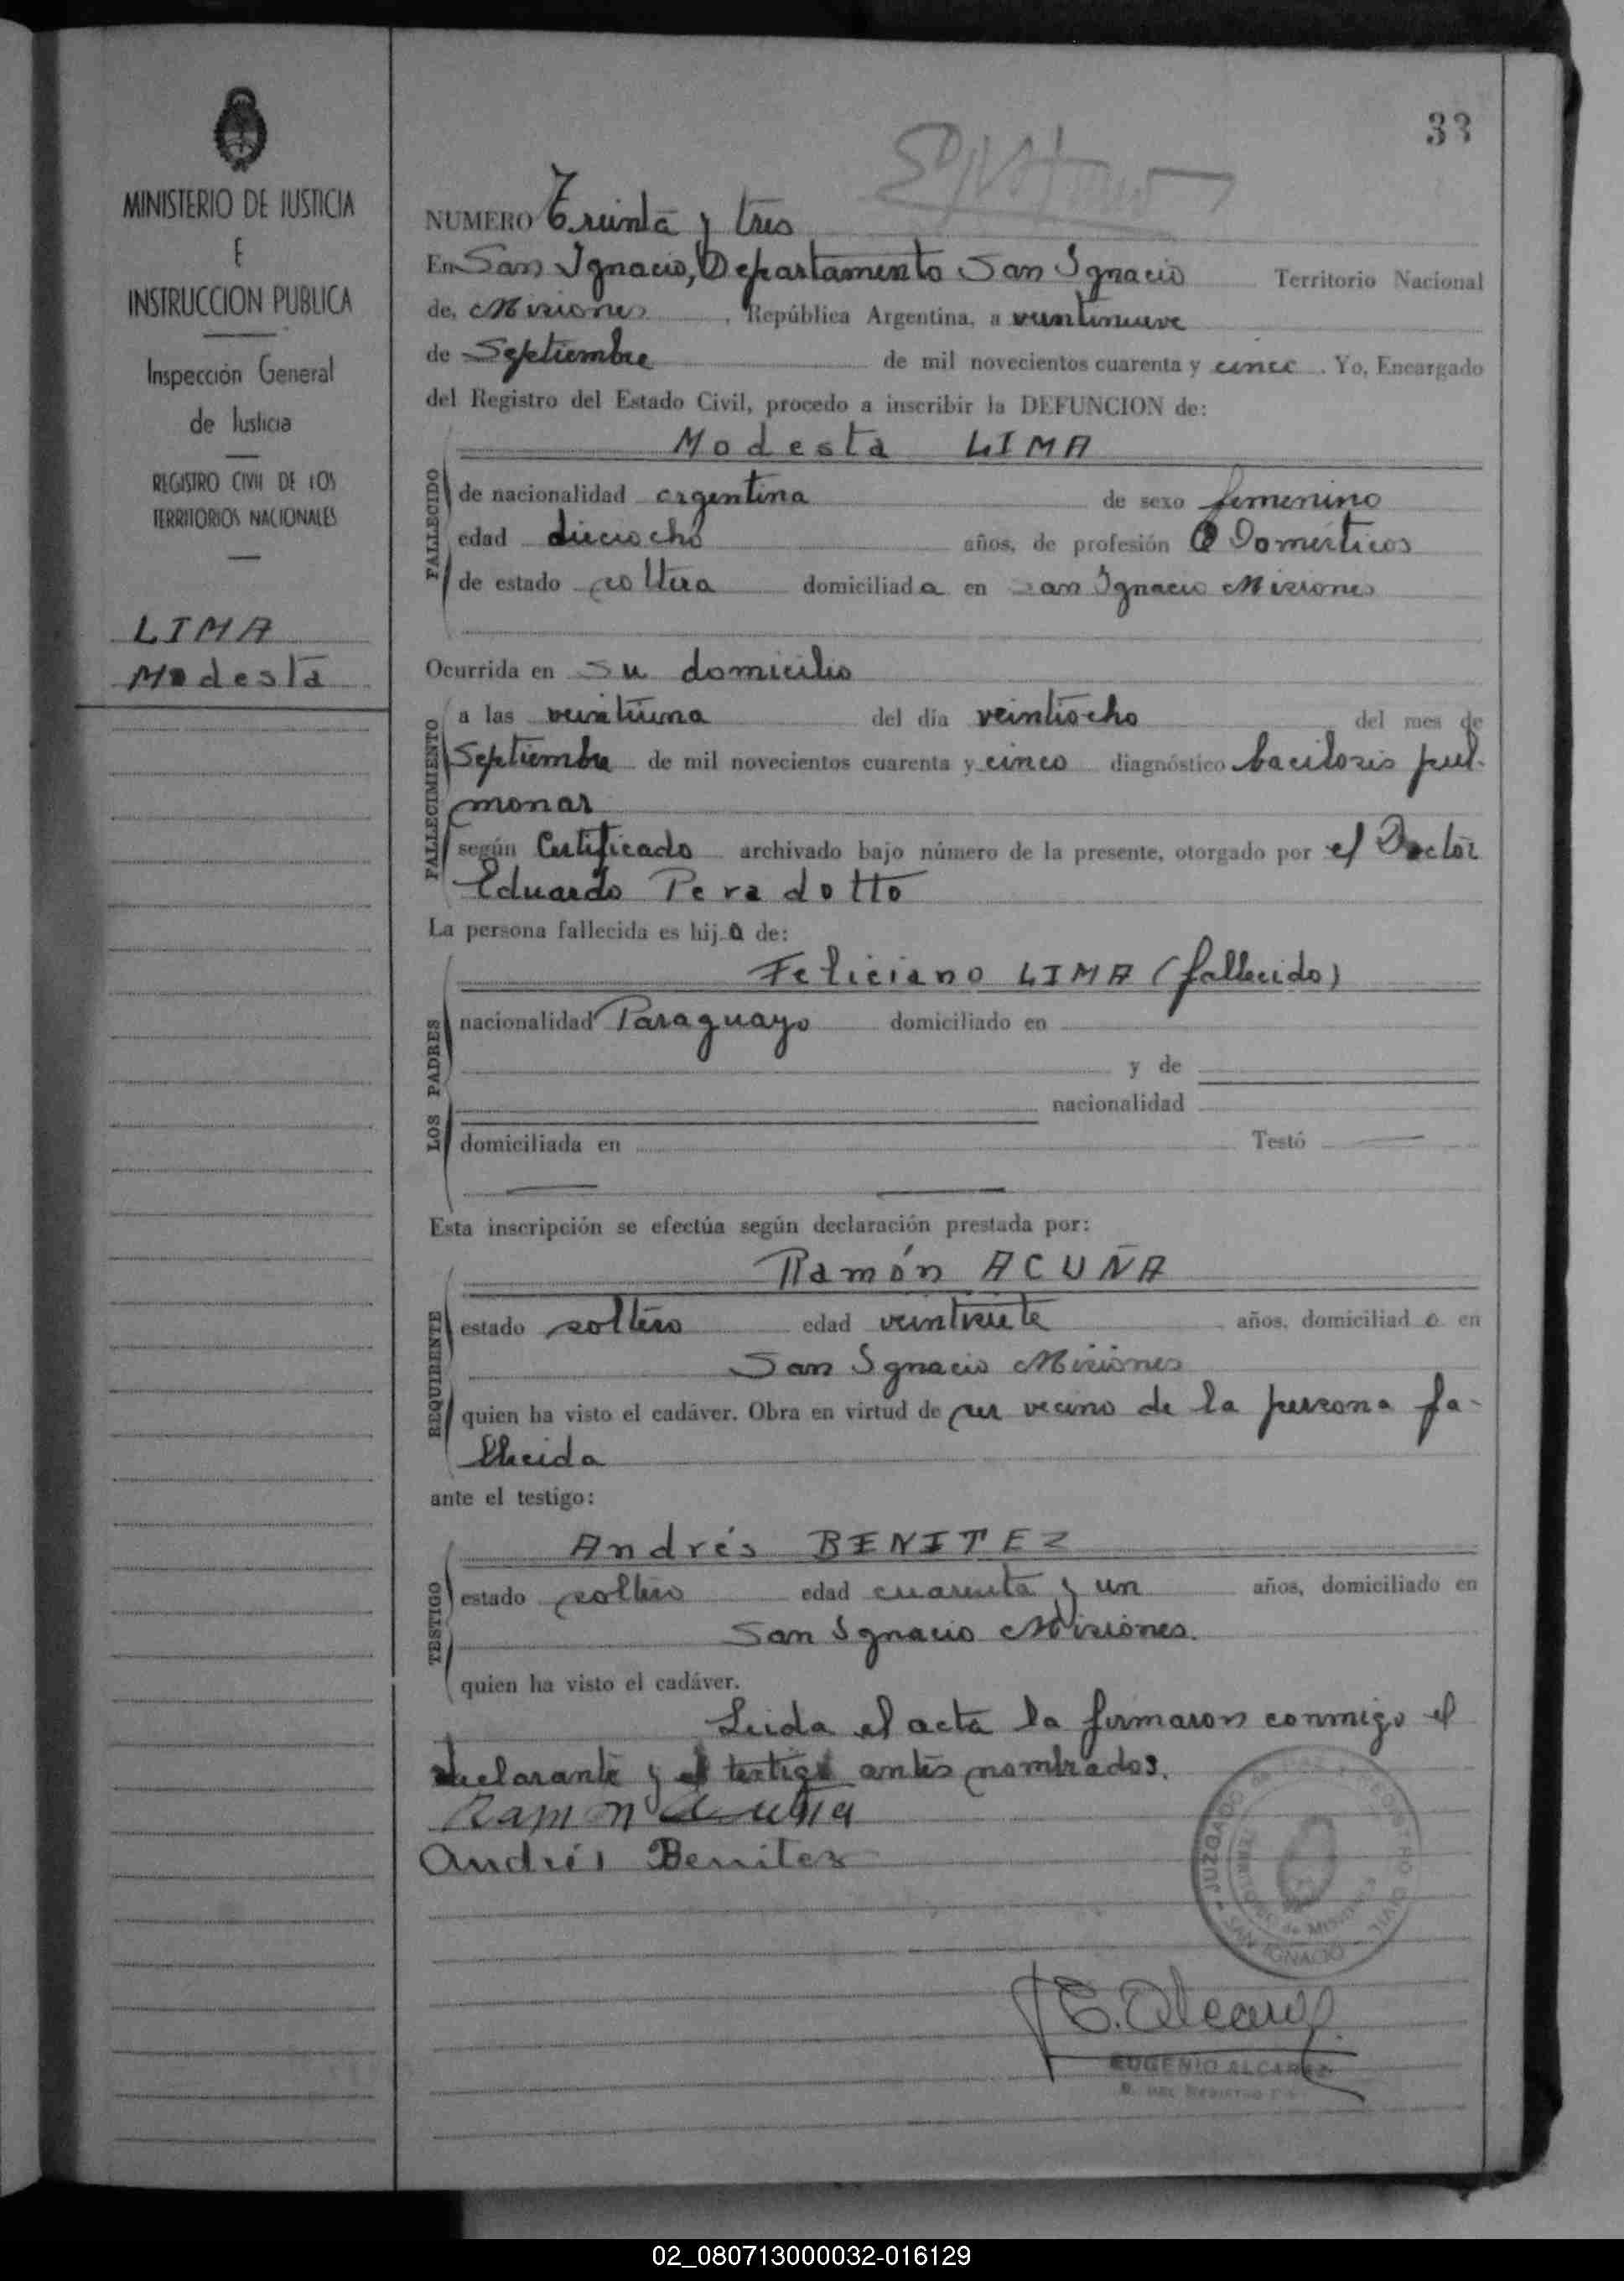 33
MINISTERIO DE JUSTICIA
E
INSTRUCCION PUBLICA
Inspección General
de Justicia
REGISTRO CIVIL DE LOS
TERRITORIOS NACIONALES
LIMA
Modesta
NUMERO Treinta y tres
En San Ignacio, Departamento San Ignacio Territorio Nacional
de, Misiones, República Argentina, a veintinueve
de Septiembre de mil novecientos cuarenta y cinco. Yo, Encargado
del Registro del Estado Civil, procedo a inscribir la DEFUNCION de:
Modesta LIMA
FALLECIDO
de nacionalidad argentina de sexo femenino
edad dieciocho años, de profesión Q Domésticos
de estado soltera domiciliada en San Ignacio Misiones
Ocurrida en su domicilio
FALLECIMIENTO
a las veintiuna del día veintiocho del mes de
Septiembre de mil novecientos cuarenta y cinco diagnóstico bacilosis pul-
monar
según Certificado archivado bajo número de la presente, otorgado por el Doctor
Eduardo Peradotto
La persona fallecida es hija de:
LOS PADRES
Feliciano LIMA (fallecido)
nacionalidad Paraguayo domiciliado en
y de
nacionalidad
domiciliada en Testó
Esta inscripción se efectúa según declaración prestada por:
REQUIRENTE
Ramón ACUÑA
estado soltero edad veintisiete años, domiciliado en
San Ignacio Misiones
quien ha visto el cadáver. Obra en virtud de ser vecino de la persona fa-
llecida
ante el testigo:
TESTIGO
Andrés BENITEZ
estado soltero edad cuarenta y un años, domiciliado en
San Ignacio Misiones.
quien ha visto el cadáver.
Leida el acta la firmaron conmigo el
declarante y el testigo antes nombrados.
Ramon Acuña
Andrés Benitez
JUZGADO de PAZ y REGISTRO CIVIL
de MISIONES
SAN IGNACIO
E. Alcaraz
EUGENIO ALCARAZ
02_080713000032-016129